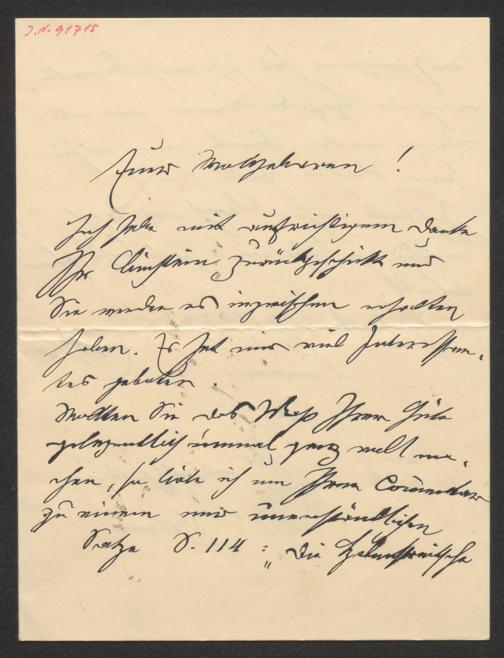 J.N. 91715
Euer Wohlgeboren!
Ich habe mit aufrichtigem Danke
Ihr zurückgeschickt und
Sie werden es inzwischen erhalten
haben. Es hat mir viel Interessan-
tes geboten
Wollten Sie das Maß Ihrer Güte
gelegentlich einmal ganz voll ma-
chen, so bäte ich um Ihren Commentar
zu einem mir unverständlichen
Satze S. 114: „Die